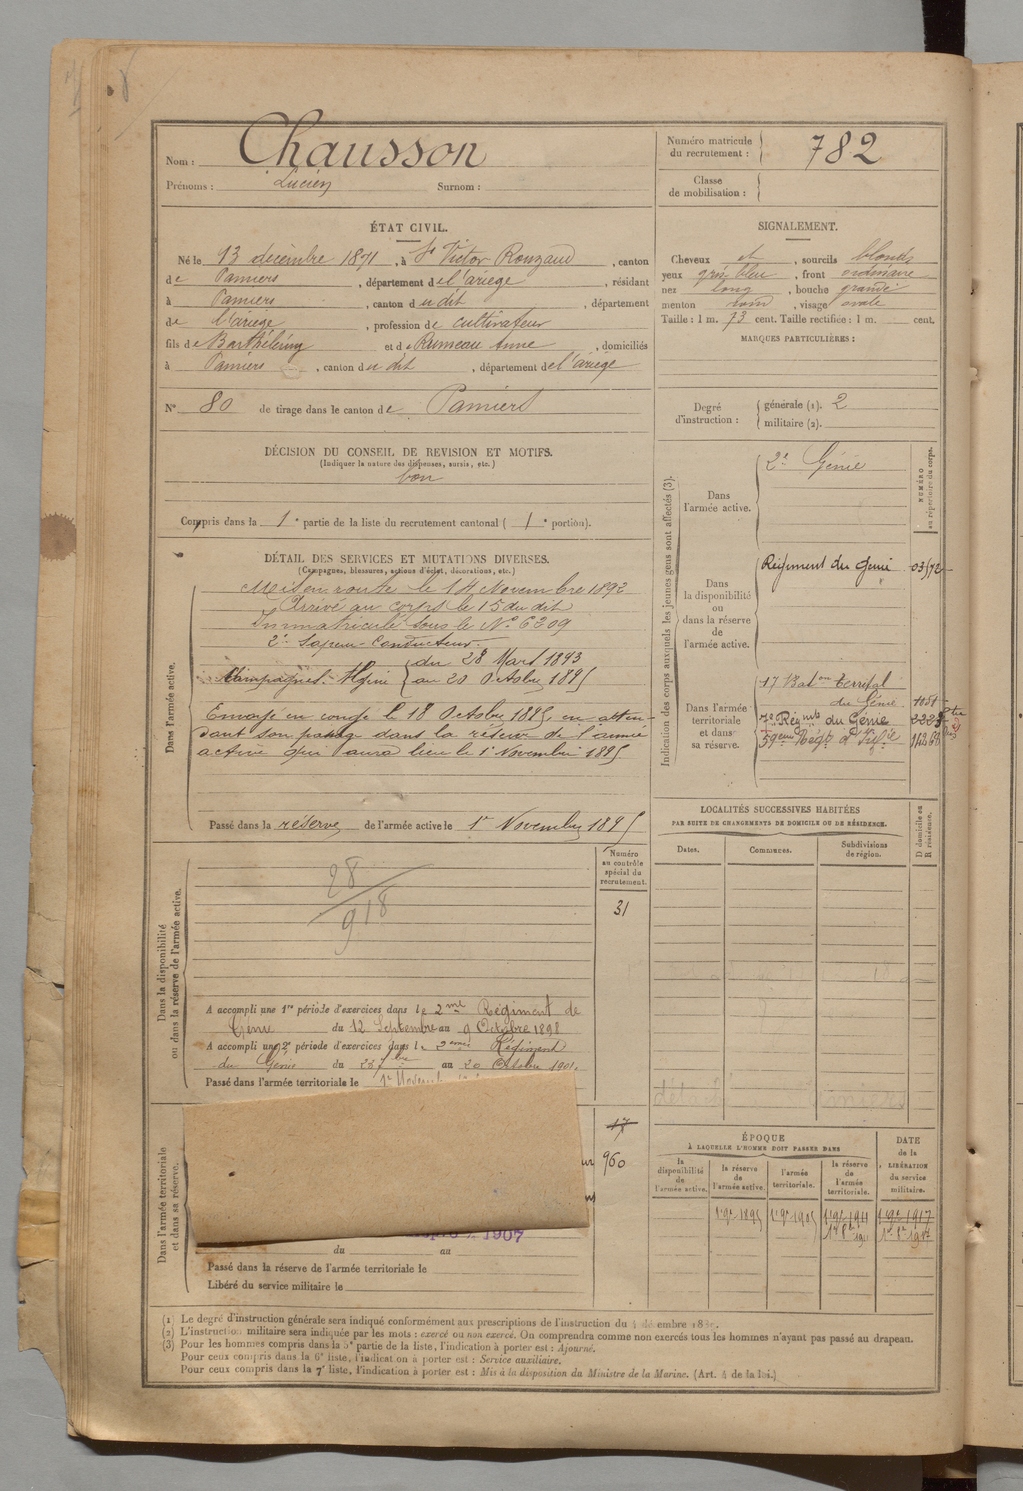 Nom : Chausson
Prénoms : Lucien Surnom :
Numéro matricule du recrutement : 782
Classe de mobilisation :
ÉTAT CIVIL.
Né le 13 décembre 1871, à St Victor Rouzaud, canton
de Pamiers, département de l'ariège, résidant
à Pamiers, canton dudit, département
de l'ariège, profession de cultivateur
fils de Barthélémy et de Rumeau Anne, domiciliés
à Pamiers, canton dudit, département de l'ariège
N° 80 de tirage dans le canton de Pamiers
SIGNALEMENT.
Cheveux et, sourcils blonds
yeux gris bleu, front ordinaire
nez long, bouche grande
menton rond, visage ovale
Taille : 1 m. 73 cent. Taille rectifiée : 1 m. cent.
MARQUES PARTICULIÈRES :
Degré d'instruction : générale (1). 2
militaire (2).
DÉCISION DU CONSEIL DE REVISION ET MOTIFS.
(Indiquer la nature des dispenses, sursis, etc.)
bon
Compris dans la 1e partie de la liste du recrutement cantonal (1e portion).
DÉTAIL DES SERVICES ET MUTATIONS DIVERSES.
(Campagnes, blessures, actions d'éclat, décorations, etc.)
Dans l'armée active.
Mis en route le 14 Novembre 1892
Arrivé au corps le 15 du dit
Immatriculé sous le N° 6309
2e Sapeur-Conducteur.
Campagnes. Algérie du 28 Mars 1893
au 20 Octobre 1895
Envoyé en congé le 18 Octobre 1895, en atten-
dant son passage dans la réserve de l'armée
active qui aura lieu le 1er Novembre 1895
Passé dans la réserve de l'armée active le 1er Novembre 1895
Indication des corps auxquels les jeunes gens sont affectés (3).
NUMÉRO au répertoire du corps.
Dans l'armée active.
2e Génie
Dans la disponibilité ou dans la réserve de l'armée active.
Régiment du Génie
Dans l'armée territoriale et dans sa réserve.
17 Baton Territal
du Génie 1051
Régmt du Génie
59eme Régt d'Infie
LOCALITÉS SUCCESSIVES HABITÉES
PAR SUITE DE CHANGEMENTS DE DOMICILE OU DE RÉSIDENCE.
Dates. Communes. Subdivisions de région. D domicile ou R résidence.
Dans la disponibilité ou dans la réserve de l'armée active.
Numéro au contrôle spécial du recrutement.
31
28
918
A accompli une 1re période d'exercices dans le 2me Régiment de
Génie du 12 Septembre au 9 Octobre 1898
A accompli une 2e période d'exercices dans le 2eme Régiment
du Génie du 23 7bre au 20 Octobre 1901.
Passé dans l'armée territoriale le 1er
Dans l'armée territoriale et dans sa réserve.
17
960
1907
du au
Passé dans la réserve de l'armée territoriale le
Libéré du service militaire le
ÉPOQUE
À LAQUELLE L'HOMME DOIT PASSER DANS
la disponibilité de l'armée active.
la réserve de l'armée active.
l'armée territoriale.
la réserve de l'armée territoriale.
DATE de la LIBÉRATION du service militaire.
1er 9bre 1895 1er 9bre 1905 1er 9bre 1911 1er 9bre 1917
(1) Le degré d'instruction générale sera indiqué conformément aux prescriptions de l'instruction du 4 décembre
(2) L'instruction militaire sera indiquée par les mots : exercé ou non exercé. On comprendra comme non exercés tous les hommes n'ayant pas passé au drapeau.
(3) Pour les hommes compris dans la 5e partie de la liste, l'indication à porter est : Ajourné.
Pour ceux compris dans la 6e liste, l'indication à porter est : Service auxiliaire.
Pour ceux compris dans la 7e liste, l'indication à porter est : Mis à la disposition du Ministre de la Marine. (Art. 4 de la loi.)